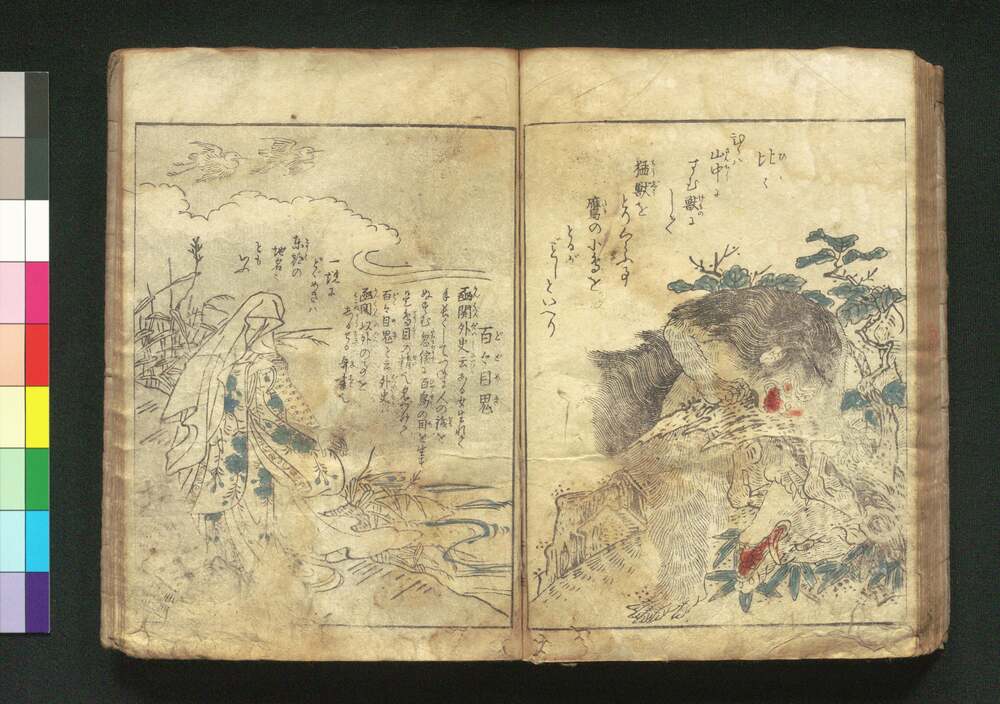 比々
ひゝハ
山中に
すむ獣に
して
猛獣を
とりくらふ事
鷹の小鳥を
とるが
ごとしといへり
百々目鬼
函関外史云ある女生れて
手長くしてつねに人の銭を
ぬすむ忽腕に百鳥の目を生ず
是鳥目の精也名づけて
百々目鬼と云外史ハ
函関以外の事を
しるせる奇書也
一説に
どどめきハ
東都の
地名と
も
いふ